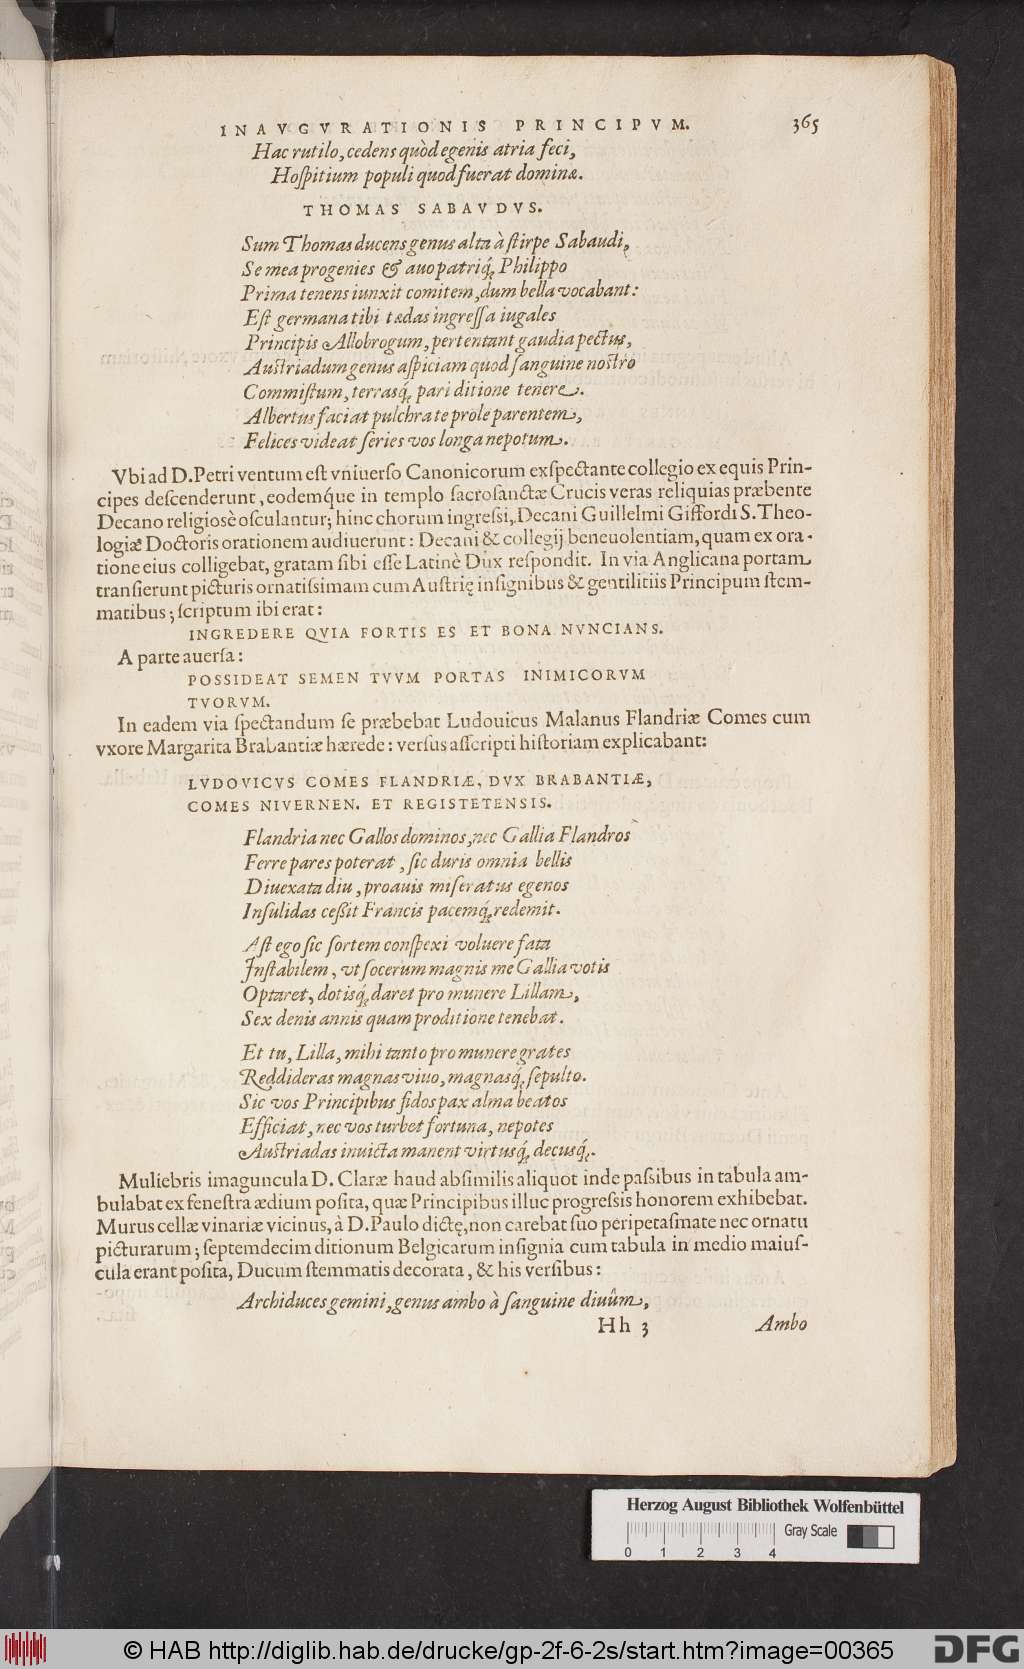 INAVGVRATIONIS PRINCIPVM. 365
Hac rutilo, cedens quòd egenis atria feci,
Hoſpitium populi quod fuerat dominæ.
THOMAS SABAVDVS.
Sum Thomas ducens genus alta à ſtirpe Sabaudi,
Se mea progenies & auo patriq́ꝫ Philippo
Prima tenens iunxit comitem, dum bella vocabant:
Eſt germana tibi tædas ingreſſa iugales
Principis Allobrogum, pertentant gaudia pectus,
Auſtriadum genus aſpiciam quod ſanguine noſtro
Commiſtum, terrasq́ꝫ pari ditione tenere.
Albertus faciat pulchra te prole parentem,
Felices videat ſeries vos longa nepotum.
Vbi ad D. Petri ventum eſt vniuerſo Canonicorum exſpectante collegio ex equis Prin-
cipes deſcenderunt, eodemq́ue in templo ſacroſanctæ Crucis veras reliquias præbente
Decano religiosè oſculantur; hinc chorum ingreſſi, Decani Guillelmi Giffordi S. Theo-
logiæ Doctoris orationem audiuerunt: Decani & collegij beneuolentiam, quam ex ora-
tione eius colligebat, gratam ſibi eſſe Latinè Dux reſpondit. In via Anglicana portam
tranſierunt picturis ornatiſsimam cum Auſtrię inſignibus & gentilitiis Principum ſtem-
matibus; ſcriptum ibi erat:
INGREDERE QVIA FORTIS ES ET BONA NVNCIANS.
A parte auerſa:
POSSIDEAT SEMEN TVVM PORTAS INIMICORVM
TVORVM.
In eadem via ſpectandum ſe præbebat Ludouicus Malanus Flandriæ Comes cum
vxore Margarita Brabantiæ hærede: verſus aſſcripti hiſtoriam explicabant:
LVDOVICVS COMES FLANDRIÆ, DVX BRABANTIÆ,
COMES NIVERNEN. ET REGISTETENSIS.
Flandria nec Gallos dominos, nec Gallia Flandros
Ferre pares poterat, ſic duris omnia bellis
Diuexata diu, proauis miſeratus egenos
Inſulidas ceßit Francis pacemq́ꝫ redemit.
Aſt ego ſic ſortem conſpexi voluere fata
Inſtabilem, vt ſocerum magnis me Gallia votis
Optaret, dotisq́ꝫ daret pro munere Lillam,
Sex denis annis quam proditione tenebat.
Et tu, Lilla, mihi tanto pro munere grates
Reddideras magnas viuo, magnasq́ꝫ ſepulto.
Sic vos Principibus fidos pax alma beatos
Efficiat, nec vos turbet fortuna, nepotes
Auſtriadas inuicta manent virtusq́ꝫ decusq́ꝫ.
Muliebris imaguncula D. Claræ haud abſimilis aliquot inde paſsibus in tabula am-
bulabat ex feneſtra ædium poſita, quæ Principibus illuc progreſsis honorem exhibebat.
Murus cellæ vinariæ vicinus, à D. Paulo dictę, non carebat ſuo peripetaſmate nec ornatu
picturarum; ſeptemdecim ditionum Belgicarum inſignia cum tabula in medio maiuſ-
cula erant poſita, Ducum ſtemmatis decorata, & his verſibus:
Archiduces gemini, genus ambo à ſanguine diuûm,
Hh 3 Ambo
Herzog August Bibliothek Wolfenbüttel
Gray Scale
0 1 2 3 4
© HAB http://diglib.hab.de/drucke/gp-2f-6-2s/start.htm?image=00365
DFG